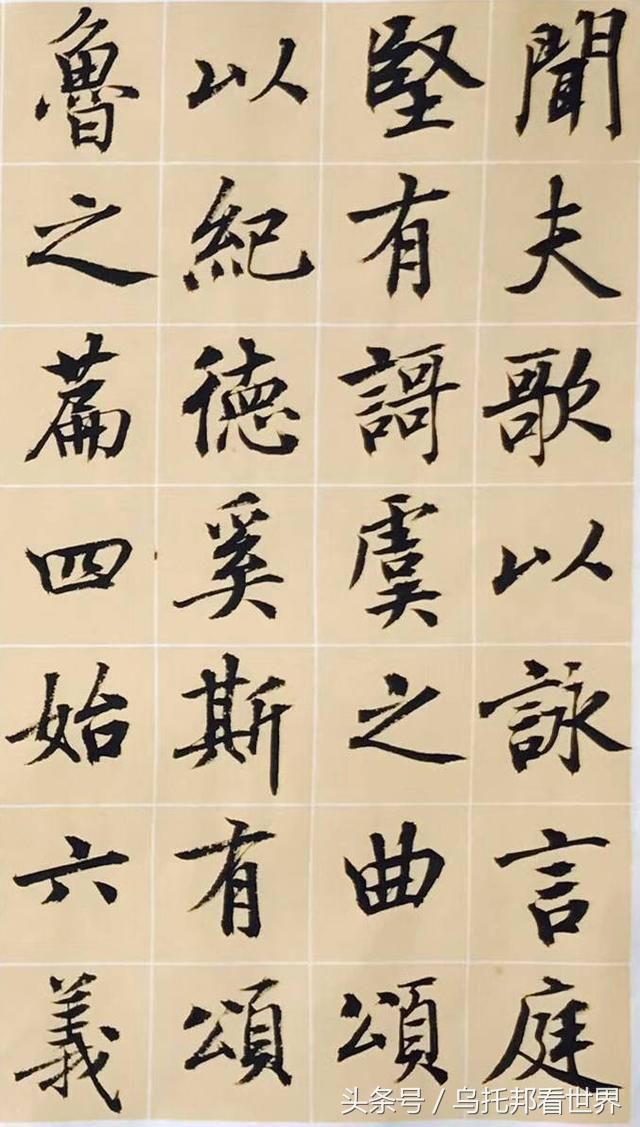 聞夫歌以詠言庭
堅有謌虞之曲頌
以紀德奚斯有頌
魯之篇四始六義
头条号 / 乌托邦看世界